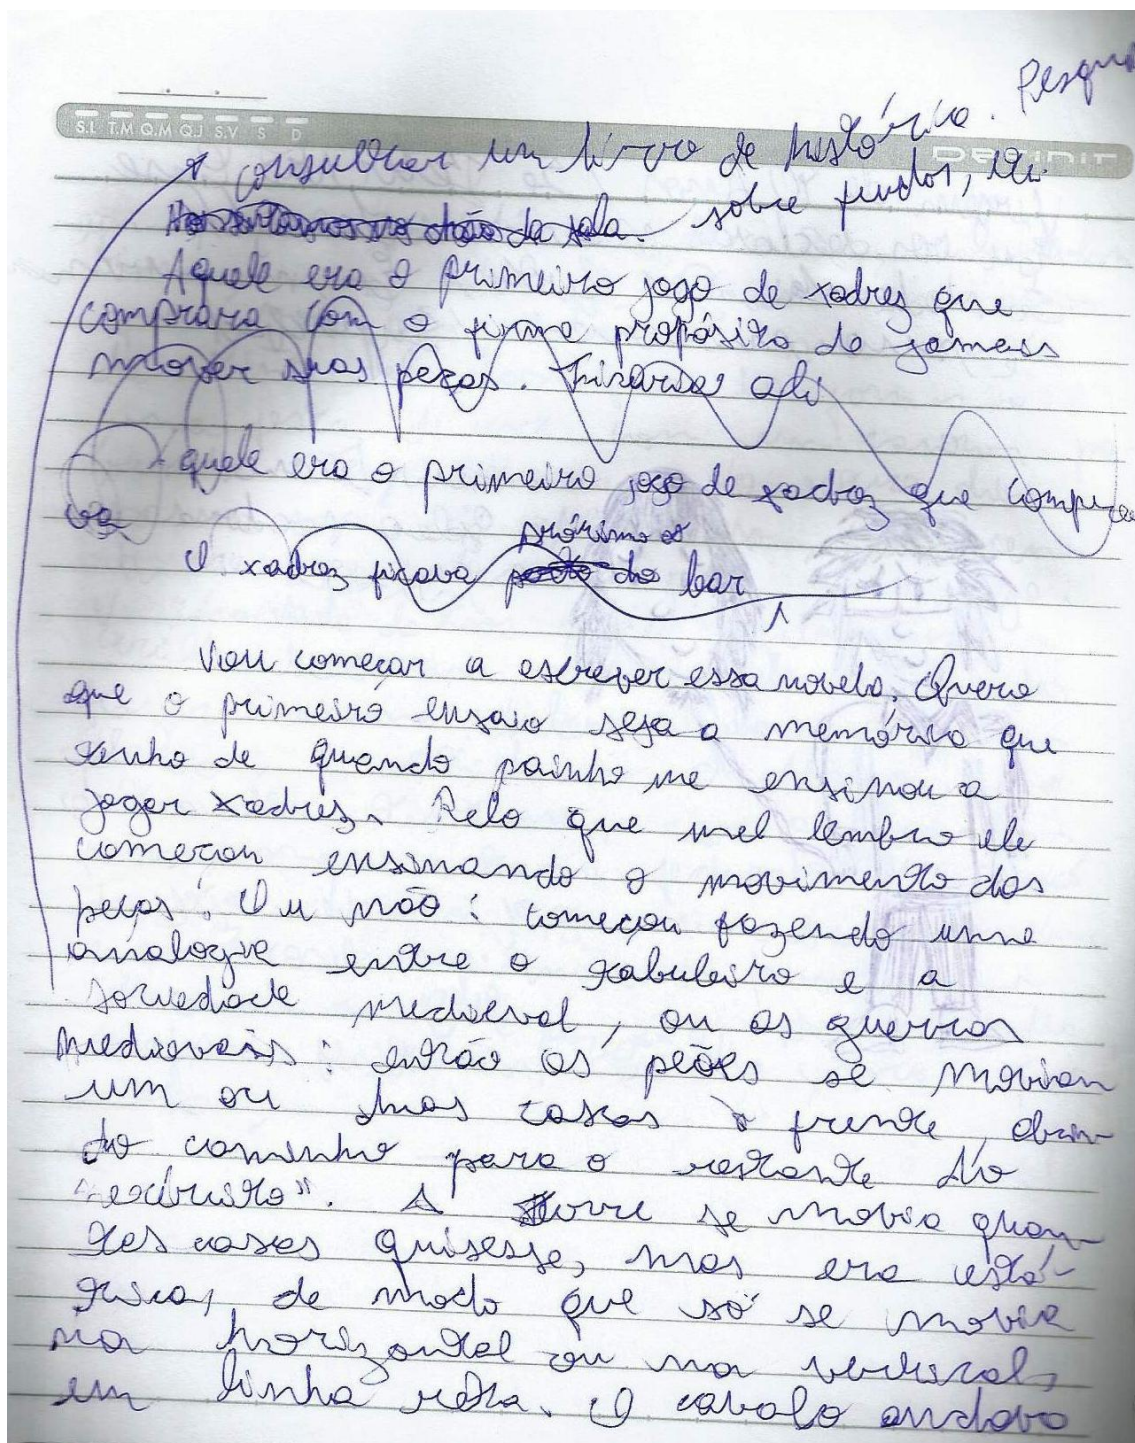 Pesqui
S.L T.M Q.M Q.J S.V S D
DEFINIT
consultar um livro de história.
sobre feudos, etc.
da sala.
Aquele era o primeiro jogo de xadrez que
comprara com o firme propósito de jamais
mover suas peças. Ficaria ali
Aquele era o primeiro jogo de xadrez que compra
va
O xadrez ficava perto do bar
próximo ao
Vou começar a escrever essa novela. Quero
que o primeiro ensaio seja a memória que
tenho de quando painho me ensinou a
jogar xadrez. Pelo que mal lembro ele
começou ensinando o movimento das
peças. Ou não: começou fazendo uma
analogia entre o tabuleiro e a
sociedade medieval, ou as guerras
medievais: então os peões se moviam
um ou duas casas à frente, abrin-
do caminho para o restante do
"exército". A torre se movia quan-
tas casas quisesse, mas era está-
tica, de modo que só se movia
na horizontal ou na vertical,
em linha reta. O cavalo andava